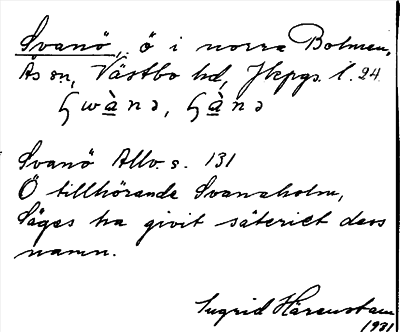 Svanö, ö i norra Bolmen,
Ås sn, Västbo hd, Jkpgs. l. 24
Svanö Allv. s. 131
Ö tillhörande Svanaholm,
Säges ha givit säteriet dess
namn.
Ingrid Härenstam
1931